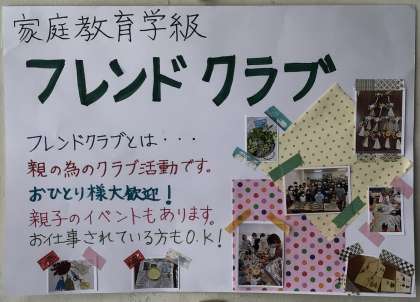 家庭教育学級
フレンド クラブ
フレンドクラブとは・・・
親の為のクラブ活動です。
おひとり様大歓迎！
親子のイベントもあります。
お仕事されている方もO.K！